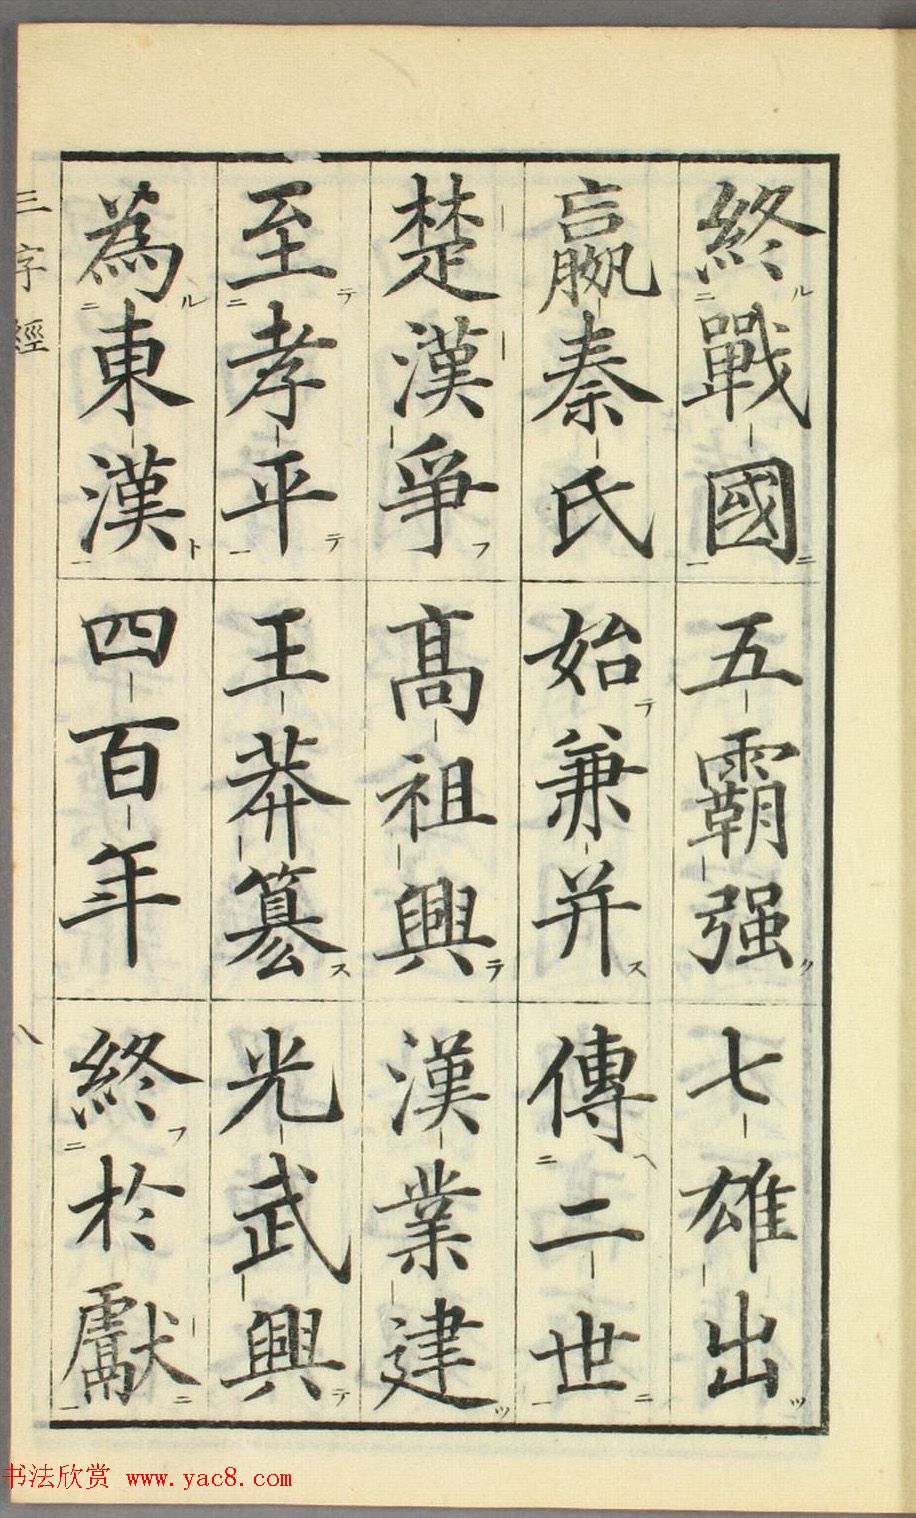 終戰國五霸强七雄出
嬴秦氏始兼并傳二世
楚漢爭高祖興漢業建
至孝平王莽篡光武興
為東漢四百年終於獻
三字經
八
书法欣赏 www.yac8.com